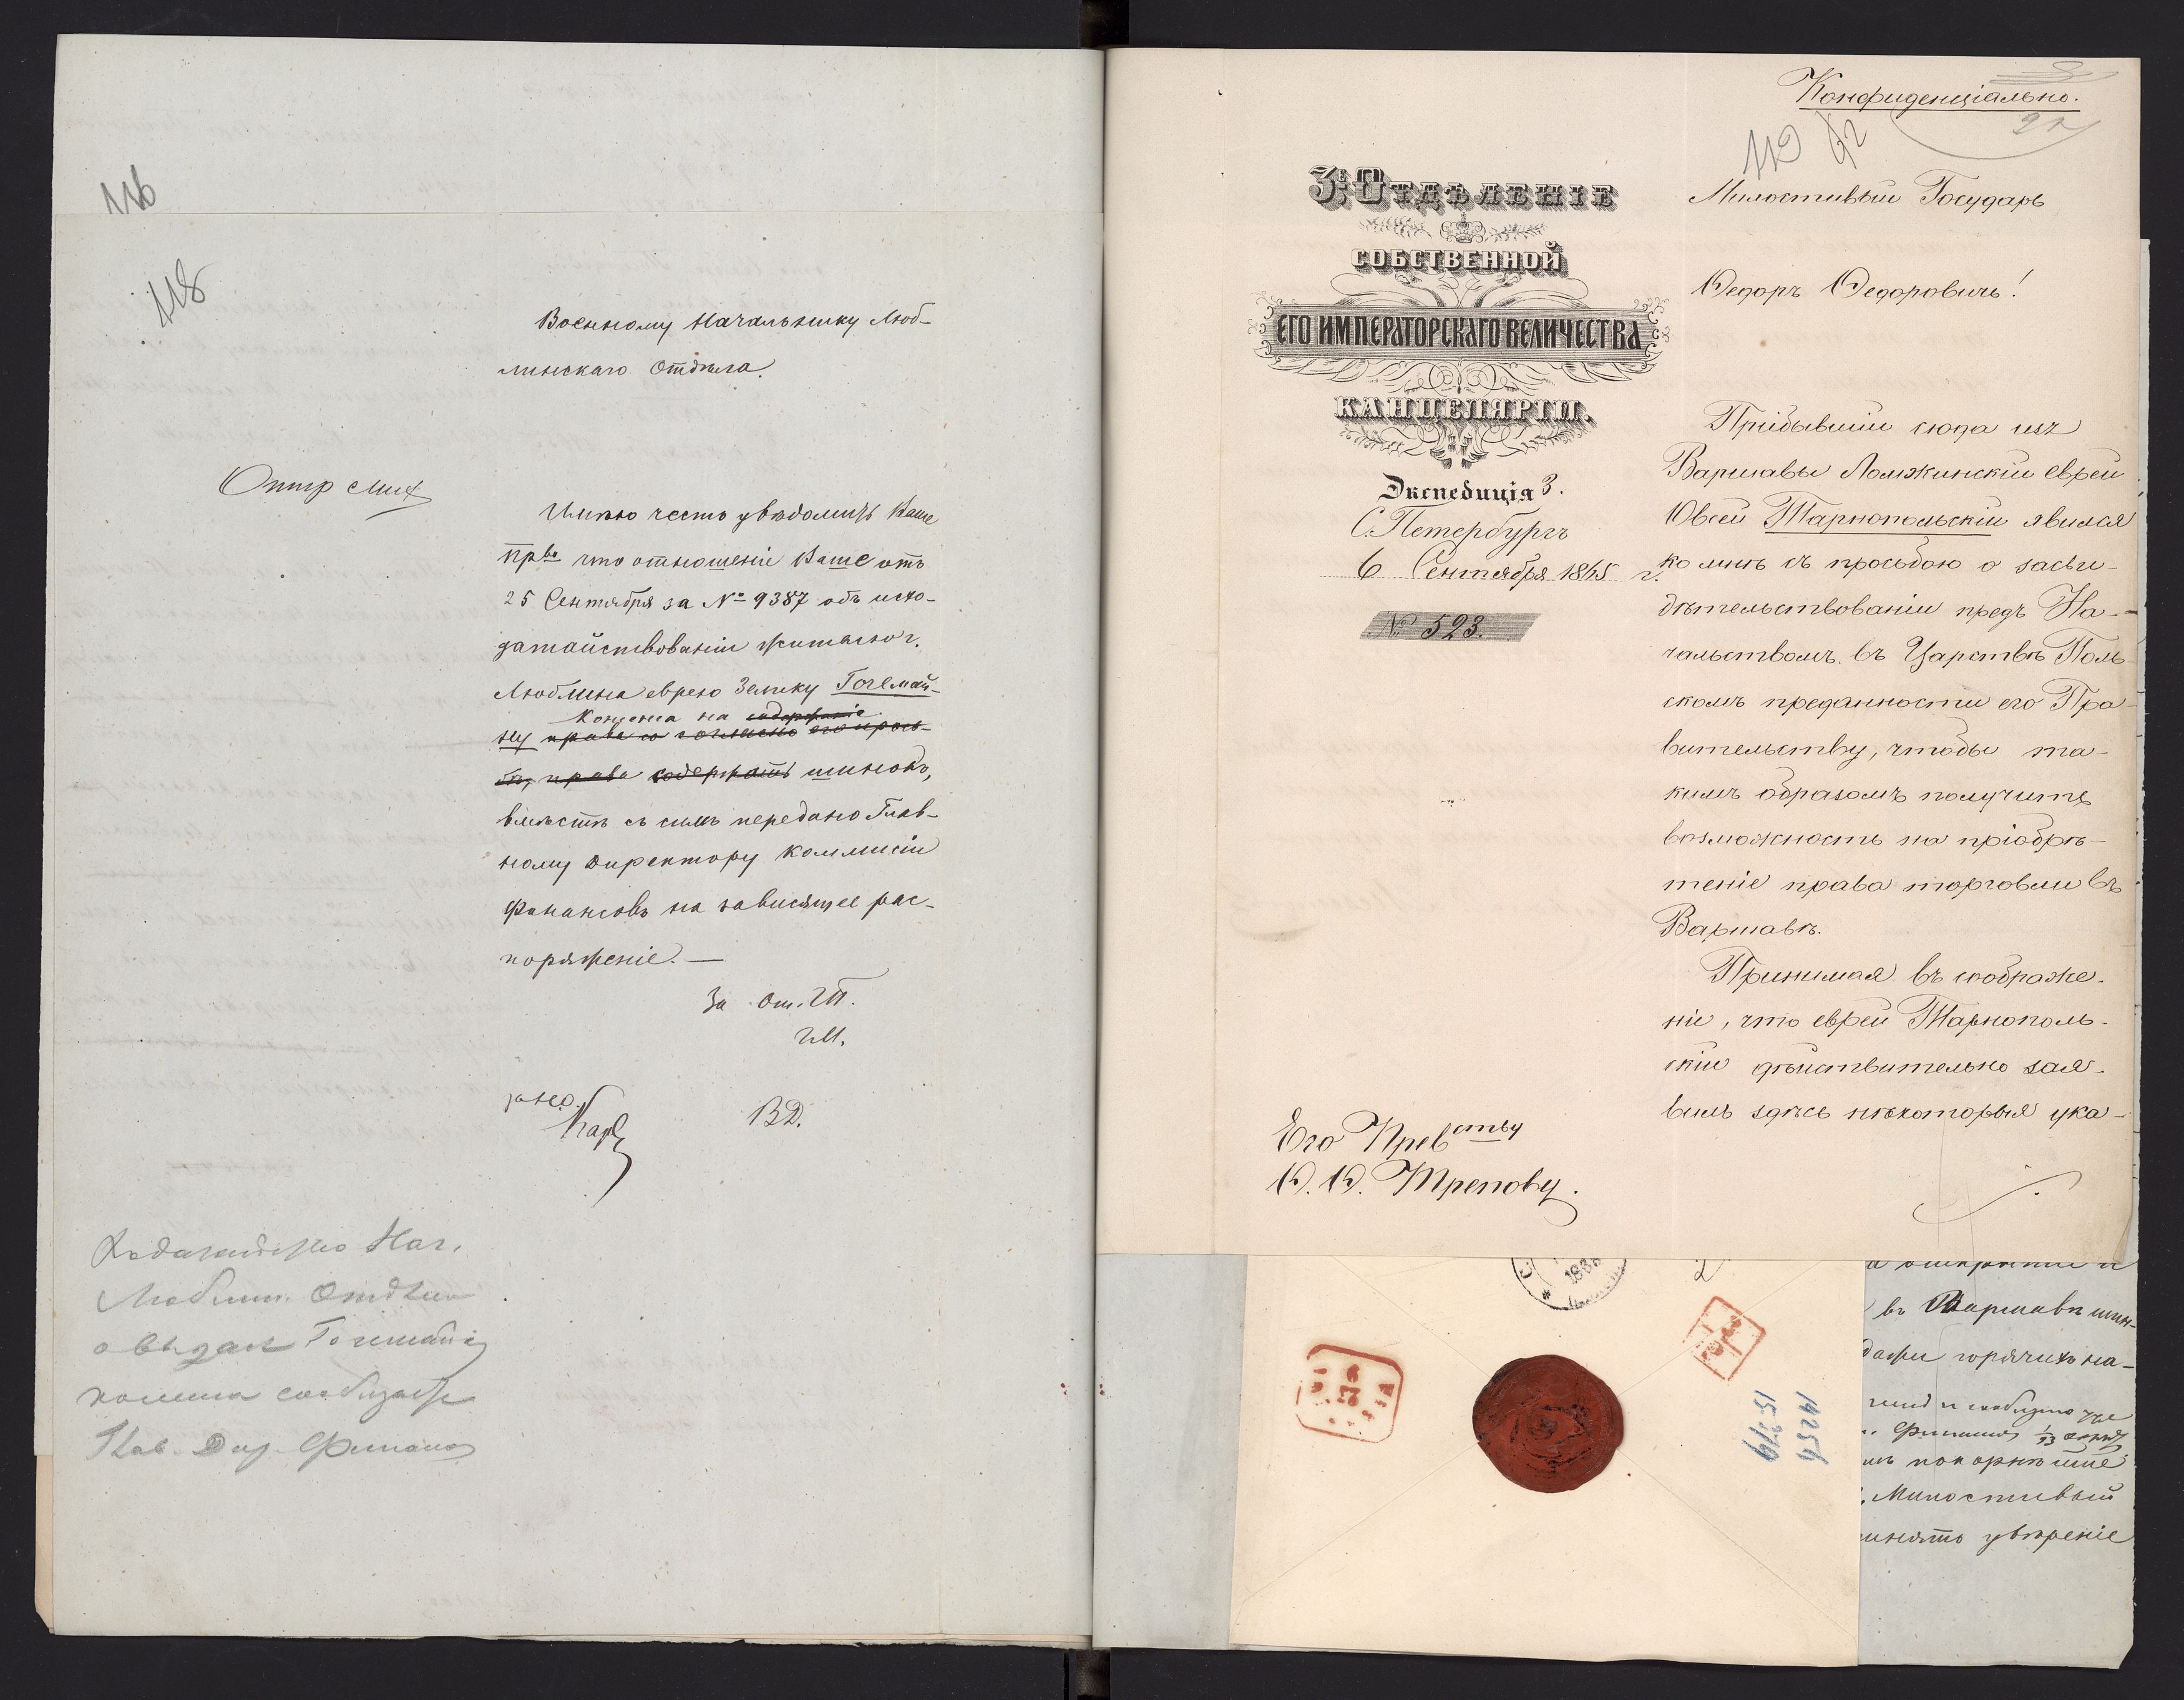 116
118
Военному Начальнику Люб-
линскаго Отдѣла.
Имѣю честь увѣдомить Ваше
Прво что отношеніе Ваше отъ
25 Сентября за № 9387 объ исхо-
датайствованіи жителю г.
Люблина еврею Зелику Гогемай-
консенса на содержаніе
ну права со согласно его прось-
бѣ, права содержать шинокъ,
вмѣстѣ съ симъ передано Глав-
ному Директору Коммисіи
Финансовъ на зависящее рас-
поряженіе. —
За От. ГП.
ГМ.
ВД.
Люблин. Отдѣла
о выдачѣ
Глав. Дир. Финансов
Конфиденціально.
119 42
3Е ОТДѢЛЕНІЕ
СОБСТВЕННОЙ
ЕГО ИМПЕРАТОРСКАГО ВЕЛИЧЕСТВА
КАНЦЕЛЯРІИ.
Экспедиція 3.
С. Петербургъ
6 Сентября 1865 г.
№ 523.
Милостивый Государь
Ѳедоръ Ѳедоровичъ!
Прибывшій сюда изъ
Варшавы Ломжинскій еврей
Овсей Тарнопольскій явился
ко мнѣ съ просьбою о засви-
дѣтельствованіи предъ На-
чальствомъ въ Царствѣ Поль-
скомъ преданности его Пра-
вительству, чтобы та-
кимъ образомъ получить
возможность на пріобрѣ-
теніе права торговли въ
Варшавѣ.
Принимая въ соображе-
ніе, что еврей Тарнополь-
скій дѣйствительно зая-
вилъ здѣсь нѣкоторыя ука-
Его Превству
Ѳ. Ѳ. Трепову.
14257
15379
въ Варшавѣ шин-
дажи горячихъ на-
покорнѣйше
Милостивый
увѣреніе